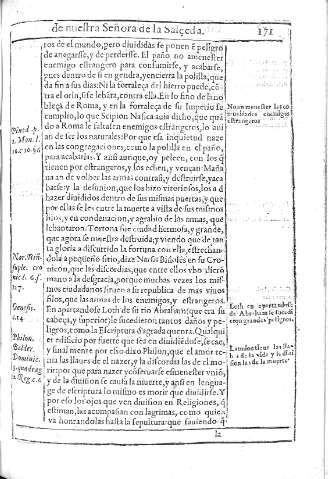 de nuestra Señora de la Salçeda. 171
ros de el mundo, pero diuididas se ponen ẽ peligro
de anegarse, y de perderse. El paño no ameneſter
enemigo estrangero para consumirse, y acabarse,
pues dentro de si engendra, y encierra la polilla, que
da fin a sus dias: Ni la fortaleça del hierro puede, cõ
tra el orin, si se labra, contra ella. En lo fino de la no
bleça de Roma, y en la fortaleça de su Imperio se
cumplio, lo que Scipion Nasica auia dicho, que quã
do a Roma le faltasen enemigos estrangeros, lo
an de ser los naturales: Por que esta inquietud naze
en las congregaciones, como la polilla en el paño,
para acabarlas. Y ansi aunque, oy peleen, con los q̃
tienen por estrangeros, y los echen, y vençan: Maña
na an de volber las armas contra si, y destruirse, y aca
barse y la desunion, que los hizo vitoriosos, los a d
hazer diuididos dentro de sus mismas puertas, y que
por ellas se les entre la muerte a vista de sus mismos
hijos, y en condenacion, y agrabio de las armas, que
lebantaron. Tortona fue ciudad hermosa, y grande,
que agora se muestra destruida, y viendo que de tan
ta gloria a discurrido la fortuna con ella, estrechan
dola a pequeño sitio, dize en su Cro
nicon, que las discordias, que entre ellos vbo dierõ
mano a la desgracia, porque muchas vezes los mis
mos ciudadanos sirven a su republica de mas viuos
filos, que las armas de los enemigos, y estrangeros.
En apartandose Loth de su tio Abraham que era su
cabeça, y superior, se sucedieron tantos daños y pe-
ligros, como la Escriptura sagrada quenta. Qualqui
er edificio por fuerte que sea en diuidiẽdose, se cae,
y finalmente por eso dixo Philon, que el amor te
nia las llaues de el nazer, y la discordia las de el mo
rir por que para nazer y conseruarse es menester vniõ,
y de la diuision se causa la muerte, y ansi en lengua-
ge de escriptura lo mismo es morir que diuidirse. Y
por eso los ojos que ven diuision en Religiones, q̃
estiman, las acompañan con lagrimas, como quien
va honrandolas hasta la sepultura que sauiendo q̃
la
No an menester las co
munidades enemigos
estrangeros
Loth en apartandose
de Abraham le sucedie
ron grandes peligros.
Genesis.
Philon.